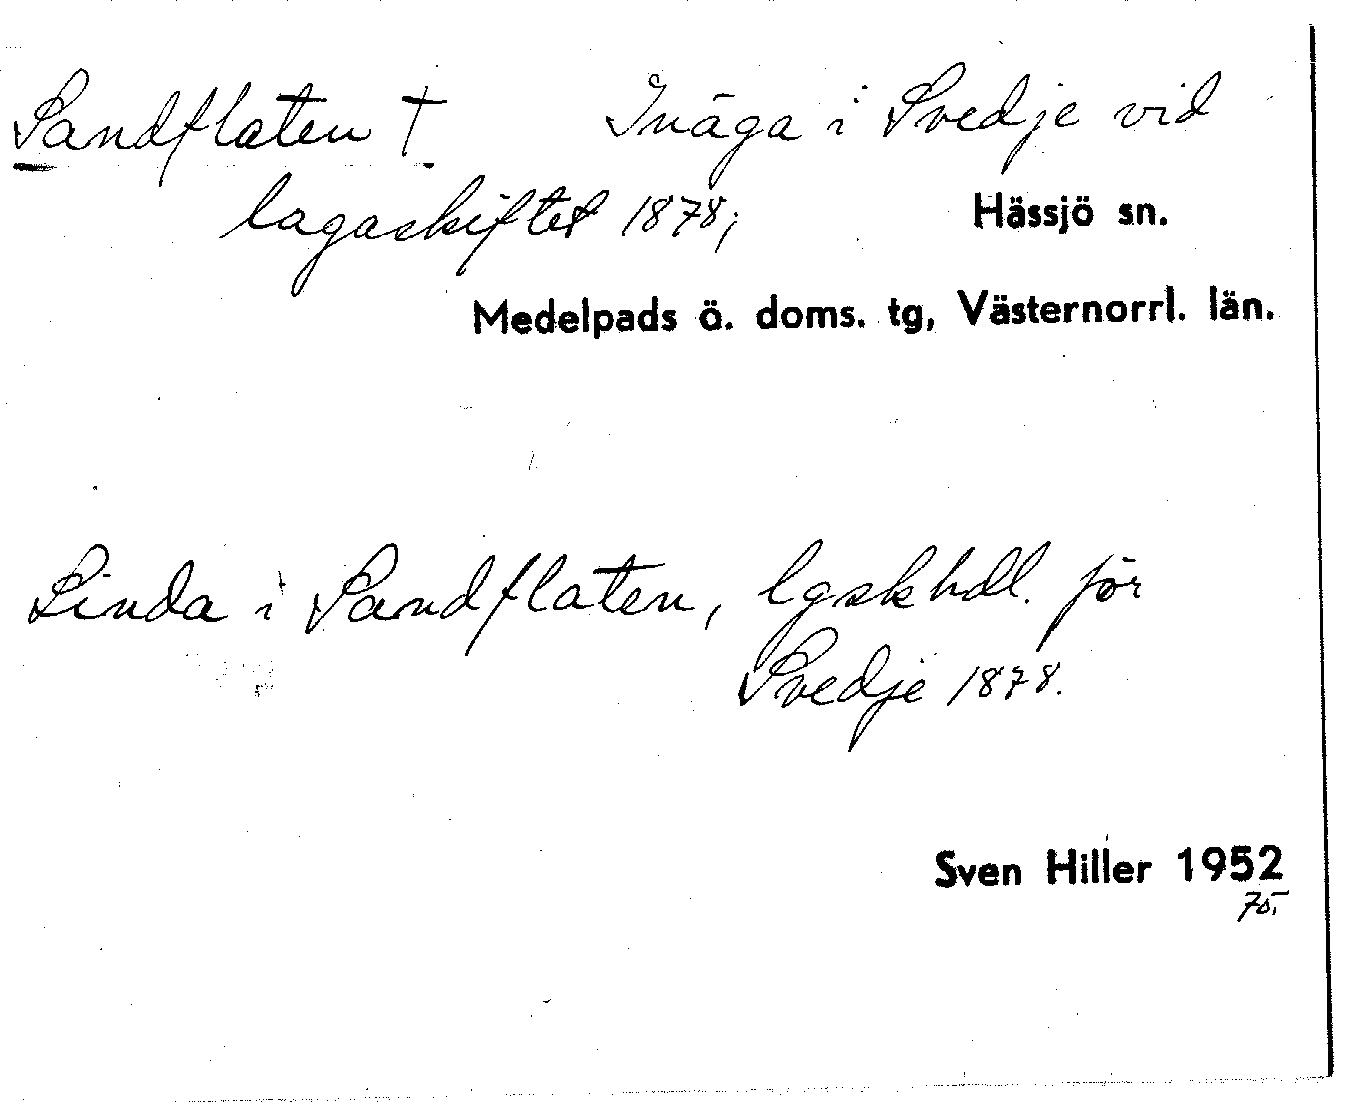 Sandflaten † Inäga i Svedje vid
lagaskiftet 1878; Hässjö sn.
Medelpads ö. doms. tg, Västernorrl. län.
Linda i Sandflaten, lgskhdl. för
Svedje 1878.
Sven Hiller 1952